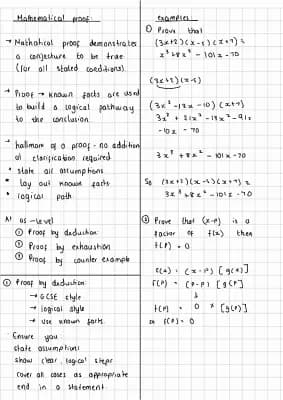 Mathematical proof:
→ Mathatical proof demonstrates
a conjecture to be true
(for all stated conditions).
→ Proof → known facts are used
to build a logical pathway
to the conclusion.
→ hallmark of a proof - no addition
al clarification required
• state all assumptions
• lay out known facts
• logical path
At as-level
① Proof by deduction
② Proof by exhaustion
③ Proof by counter example
① Proof by deduction:
→ GCSE style
→ logical style
→ use known facts.
Ensure you
state assumptions
show clear, logical steps
cover all cases as appropriate
end in a statement
examples
① Prove that
(3x+2)(x-5)(x+7) =
x³+8x²-101x-70
(3x+2)(x-5)
(3x²-13x-10)(x+7)
3x³+21x²-13x²-91x
-10x -70
3x³+8x²-101x-70
So (3x+2)(x-5)(x+7) =
3x³+8x²-101x-70
② Prove that (x-p) is a
factor of f(x) then
f(p) = 0
f(x) = (x-p) [g(x)]
f(p) = (p-p) [g(p)]
↓
f(p) = 0 × [g(p)]
so f(p) = 0